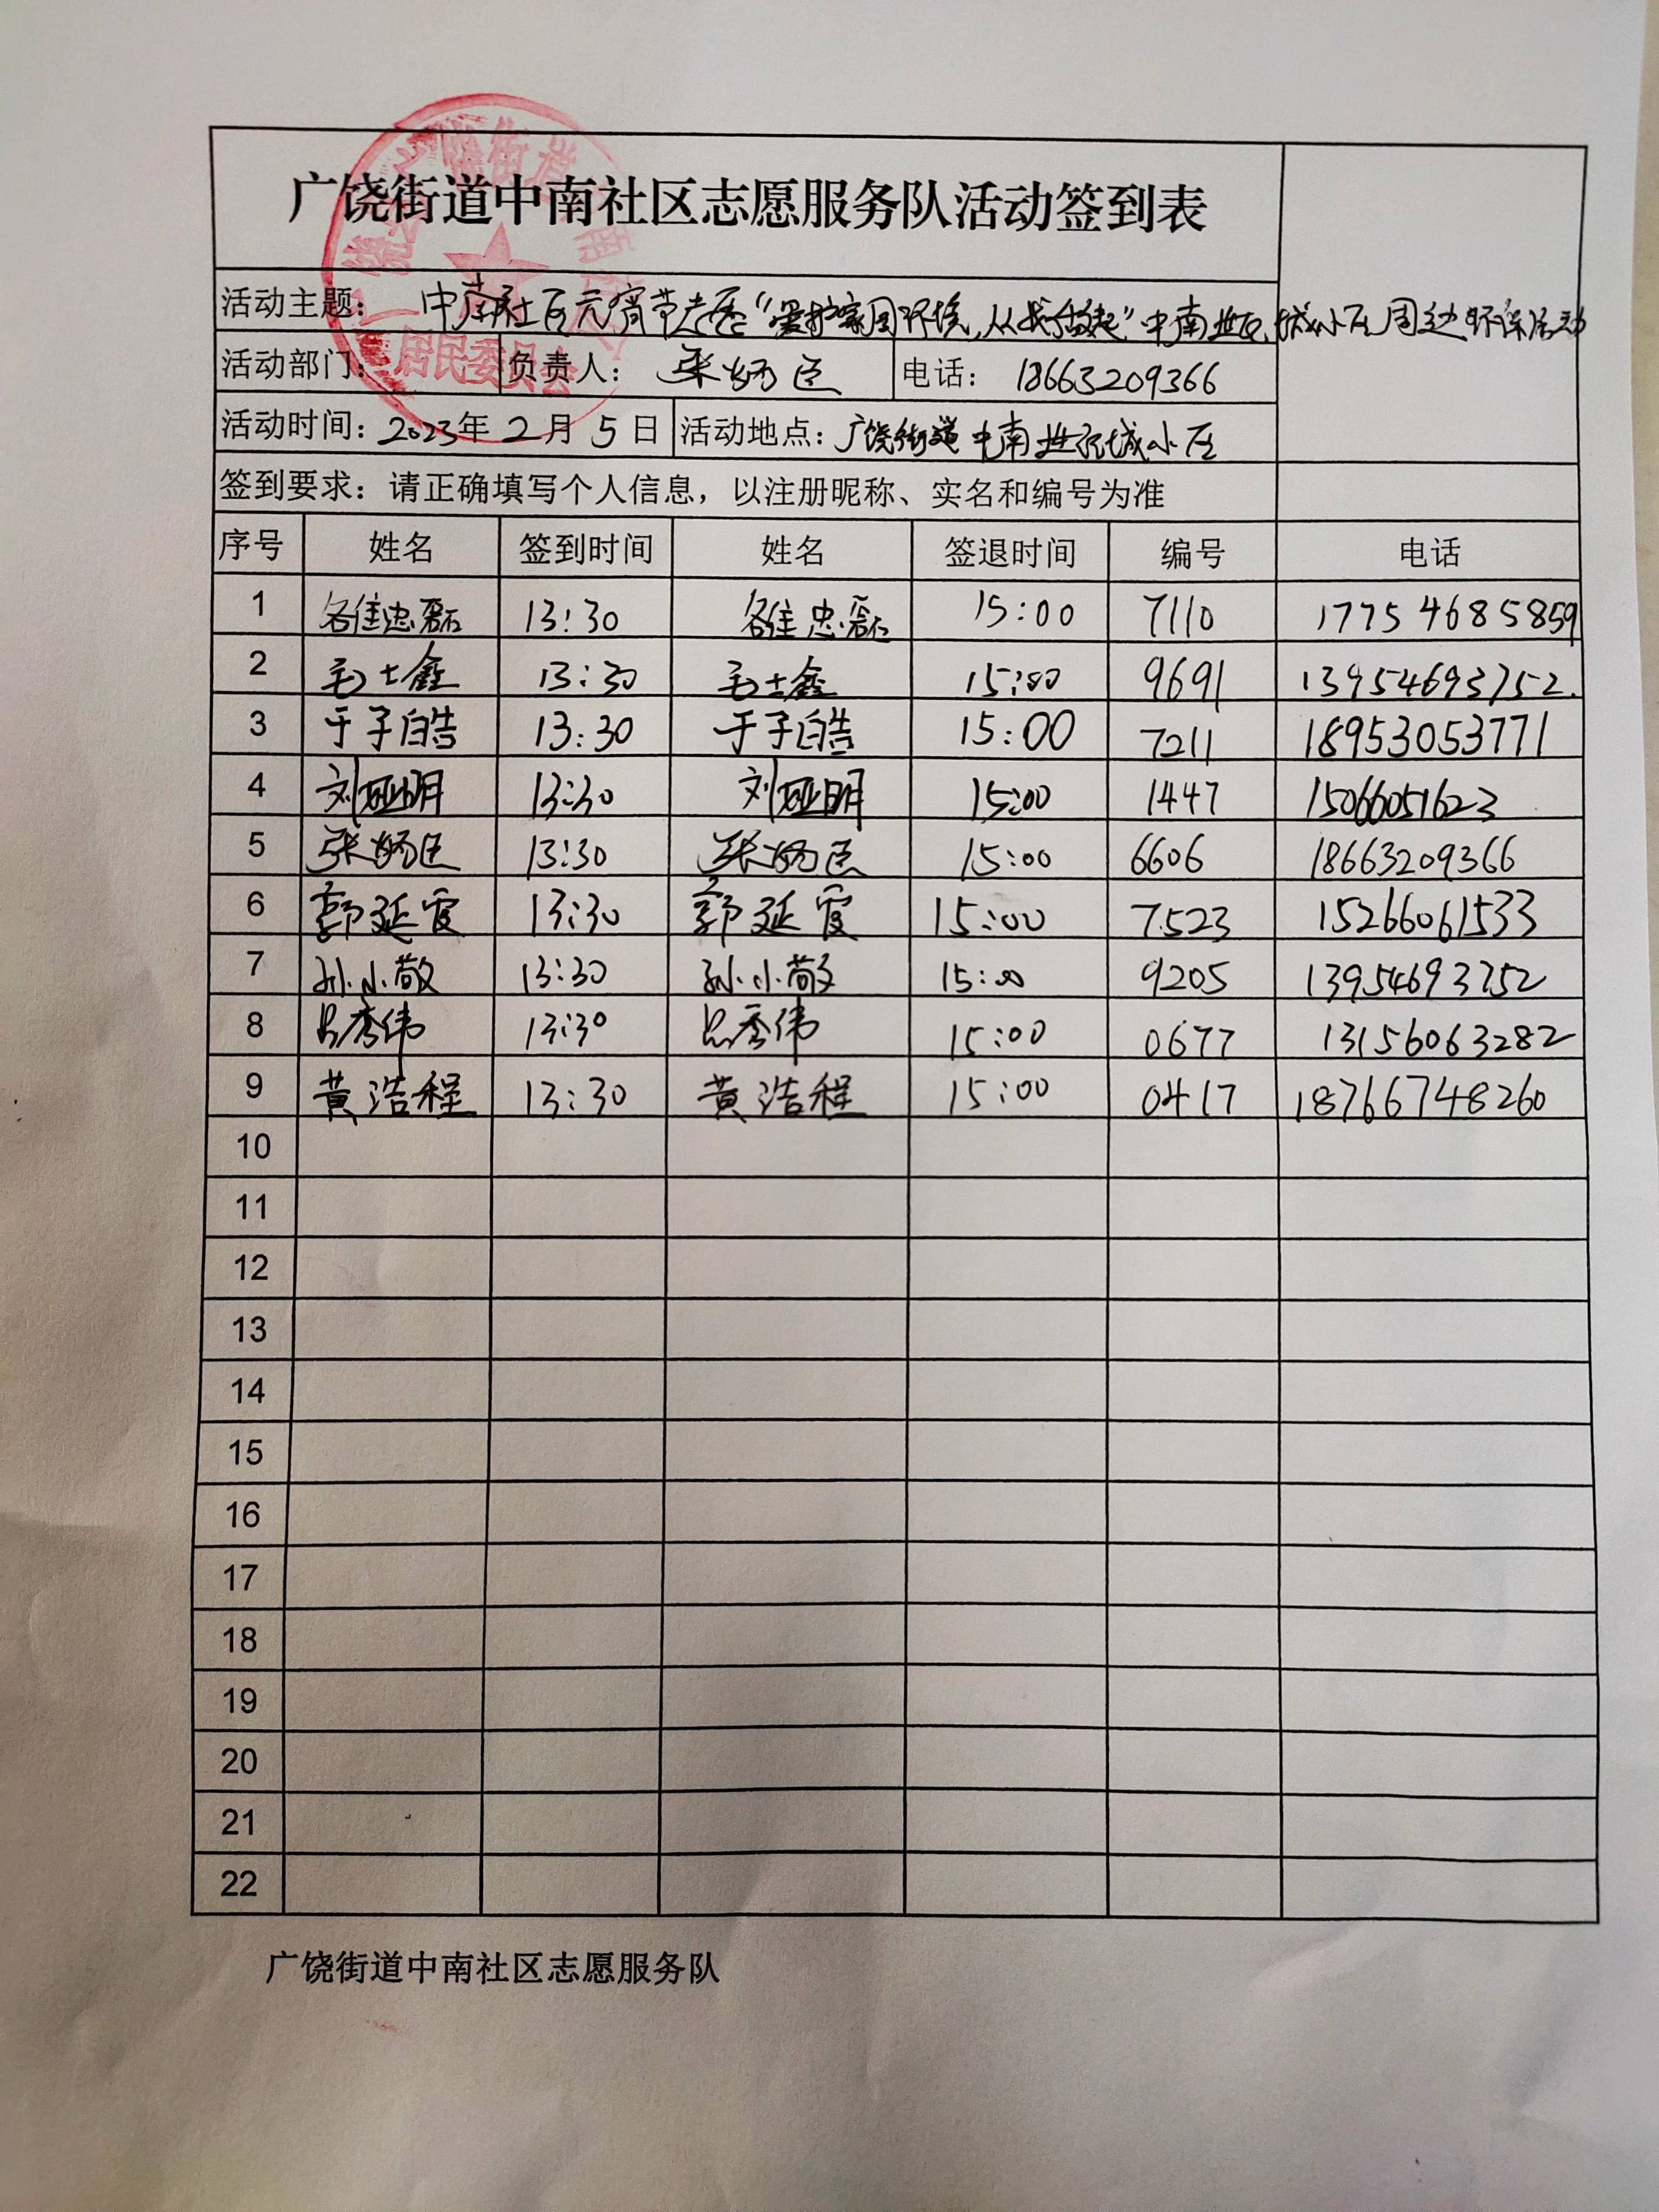 广饶街道中南社区志愿服务队活动签到表
活动主题： 中南社区元宵节志愿“爱护家园环境，从我做起”中南世纪城小区周边环保活动
活动部门： 负责人： 张炳臣 电话： 18663209366
活动时间：2023年2月5日 活动地点：广饶街道中南世纪城小区
签到要求：请正确填写个人信息，以注册昵称、实名和编号为准
序号 姓名 签到时间 姓名 签退时间 编号 电话
1 昝忠磊 13:30 昝忠磊 15:00 7110 17754685859
2 毛士鑫 13:30 毛士鑫 15:00 9691 13954693752.
3 于子皓 13:30 于子皓 15:00 7211 18953053771
4 刘亚明 13:30 刘亚明 15:00 1447 15066051623
5 张炳臣 13:30 张炳臣 15:00 6606 18663209366
6 郭延霞 13:30 郭延霞 15:00 7523 15266061533
7 孙小敬 13:30 孙小敬 15:00 9205 13954693752
8 吕秀伟 13:30 吕秀伟 15:00 0677 13156063282
9 黄浩程 13:30 黄浩程 15:00 0417 18766748260
10
11
12
13
14
15
16
17
18
19
20
21
22
广饶街道中南社区志愿服务队
居民委员会